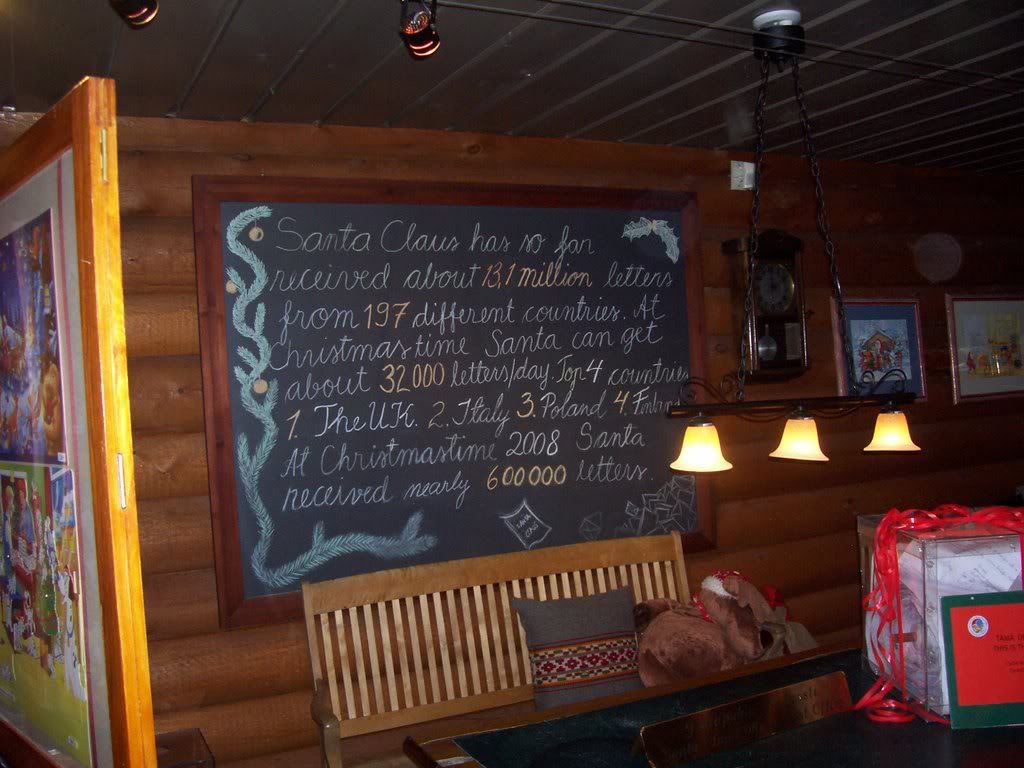 Santa Claus has so far
received about 13,1 million letters
from 197 different countries. At
Christmastime Santa can get
about 32 000 letters/day. Top 4 countries
1. The UK. 2. Italy 3. Poland 4.
At Christmastime 2008 Santa
received nearly 600 000 letters.
TÄMÄ
THIS IS